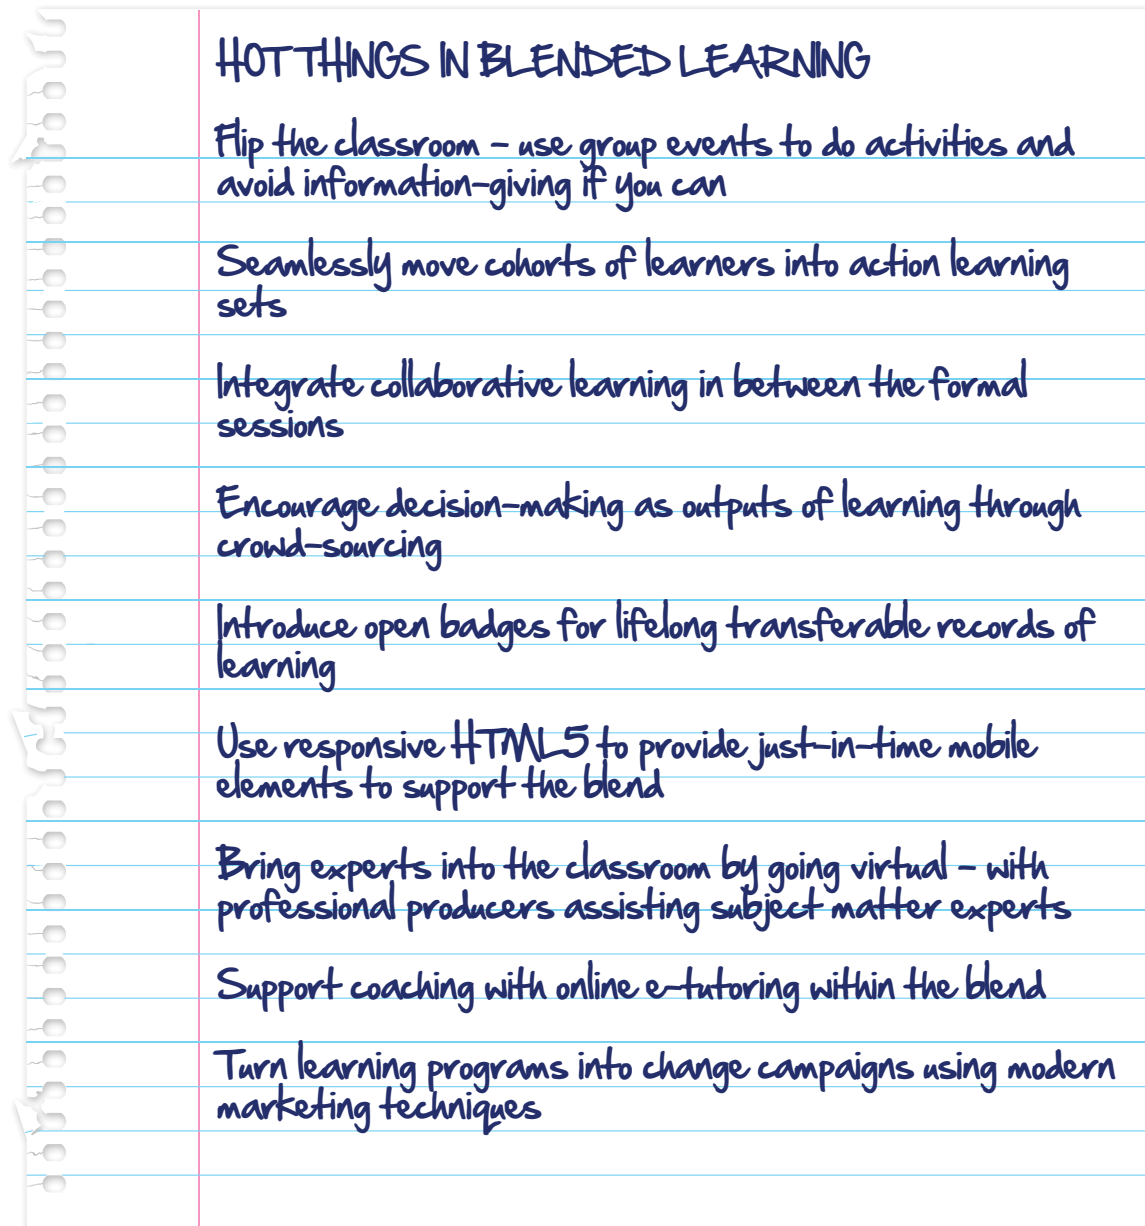 HOT THINGS IN BLENDED LEARNING
Flip the classroom – use group events to do activities and
avoid information-giving if you can
Seamlessly move cohorts of learners into action learning
sets
Integrate collaborative learning in between the formal
sessions
Encourage decision-making as outputs of learning through
crowd-sourcing
Introduce open badges for lifelong transferable records of
learning
Use responsive HTML5 to provide just-in-time mobile
elements to support the blend
Bring experts into the classroom by going virtual – with
professional producers assisting subject matter experts
Support coaching with online e-tutoring within the blend
Turn learning programs into change campaigns using modern
marketing techniques